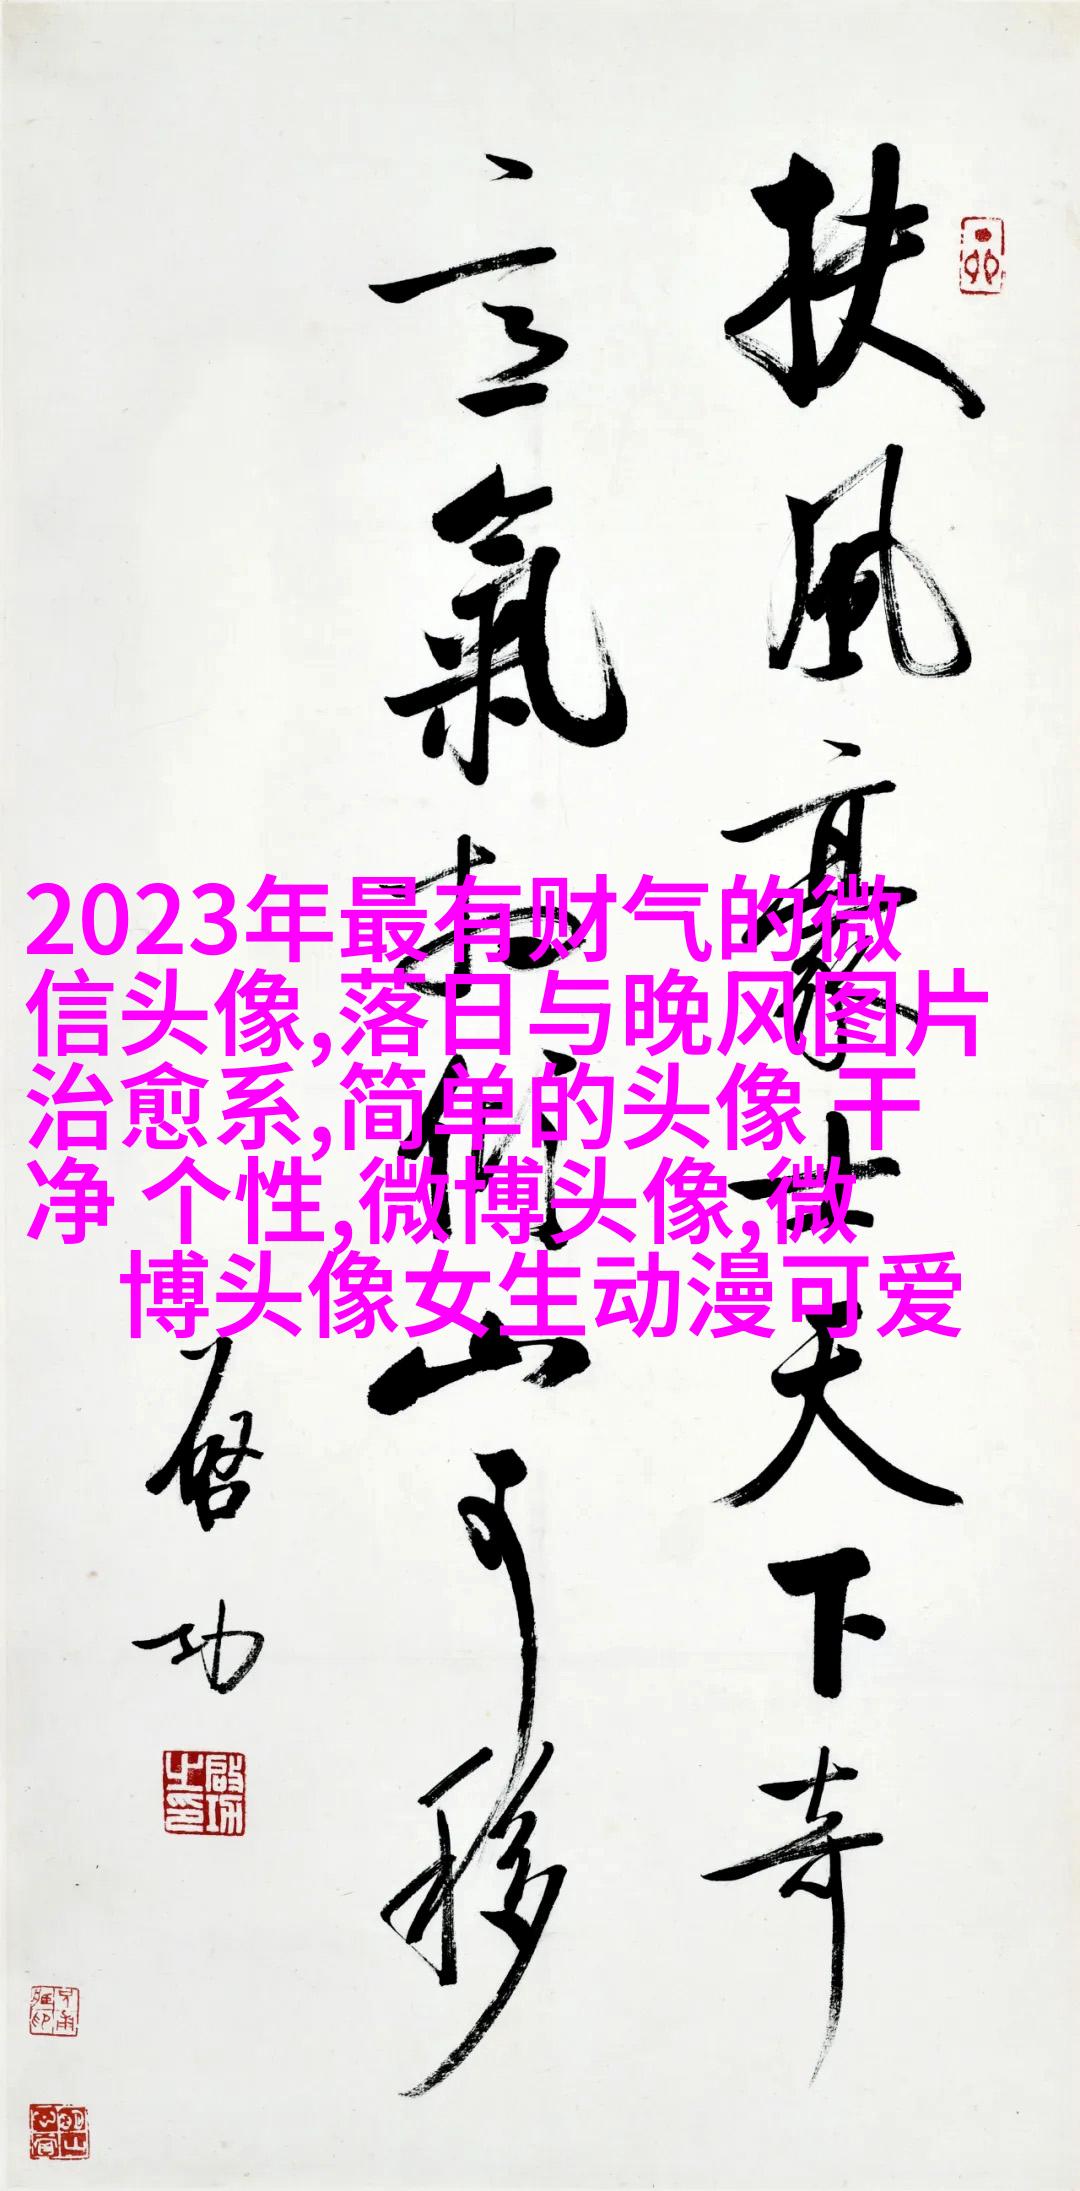 扶風豪士天下奇
意氣相傾山可移
啓功
2023年最有财气的微
信头像,落日与晚风图片
治愈系,简单的头像 干
净 个性,微博头像,微
博头像女生动漫可爱